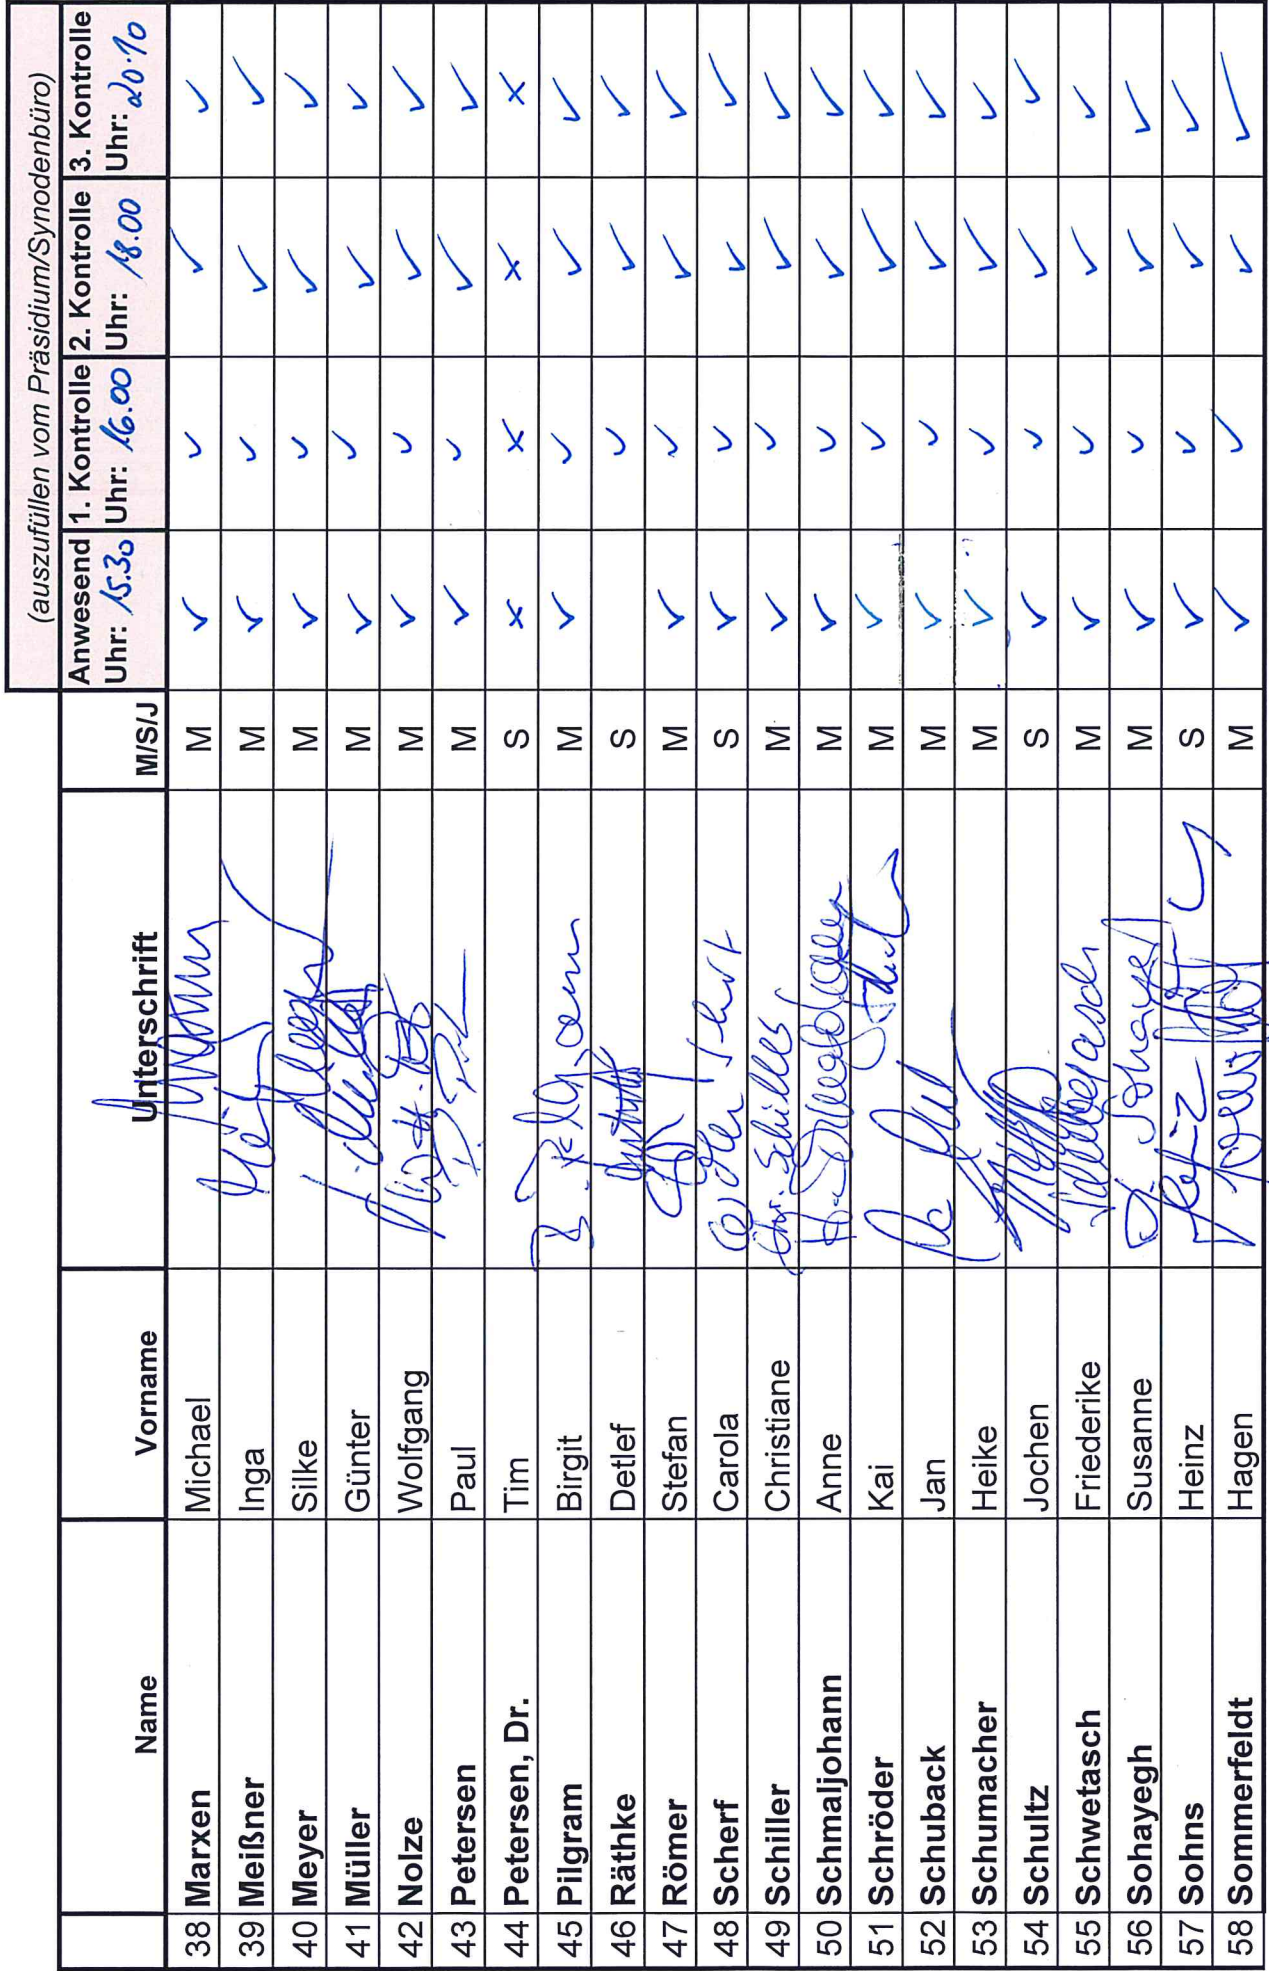 (auszufüllen vom Präsidium/Synodenbüro)
Name Vorname Unterschrift M/S/J Anwesend Uhr: 15.30 1. Kontrolle Uhr: 16.00 2. Kontrolle Uhr: 18.00 3. Kontrolle Uhr: 20.10
38 Marxen Michael M ✓ ✓ ✓ ✓
39 Meißner Inga M ✓ ✓ ✓ ✓
40 Meyer Silke M ✓ ✓ ✓ ✓
41 Müller Günter M ✓ ✓ ✓ ✓
42 Nolze Wolfgang M ✓ ✓ ✓ ✓
43 Petersen Paul M ✓ ✓ ✓ ✓
44 Petersen, Dr. Tim S x x x x
45 Pilgram Birgit M ✓ ✓ ✓ ✓
46 Räthke Detlef S ✓ ✓ ✓
47 Römer Stefan M ✓ ✓ ✓ ✓
48 Scherf Carola S ✓ ✓ ✓ ✓
49 Schiller Christiane Chr. Schiller M ✓ ✓ ✓ ✓
50 Schmaljohann Anne M ✓ ✓ ✓ ✓
51 Schröder Kai M ✓ ✓ ✓ ✓
52 Schuback Jan M ✓ ✓ ✓ ✓
53 Schumacher Heike M ✓ ✓ ✓ ✓
54 Schultz Jochen S ✓ ✓ ✓ ✓
55 Schwetasch Friederike M ✓ ✓ ✓ ✓
56 Sohayegh Susanne M ✓ ✓ ✓ ✓
57 Sohns Heinz S ✓ ✓ ✓ ✓
58 Sommerfeldt Hagen M ✓ ✓ ✓ ✓